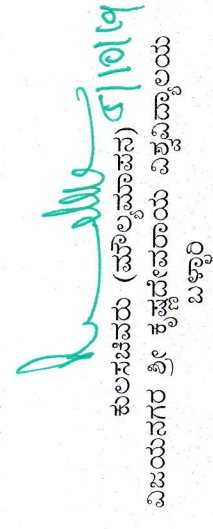 5/10/19
ಕುಲಸಚಿವರು (ಮೌಲ್ಯಮಾಪನ)
ವಿಜಯನಗರ ಶ್ರೀ ಕೃಷ್ಣದೇವರಾಯ ವಿಶ್ವವಿದ್ಯಾಲಯ
ಬಳ್ಳಾರಿ